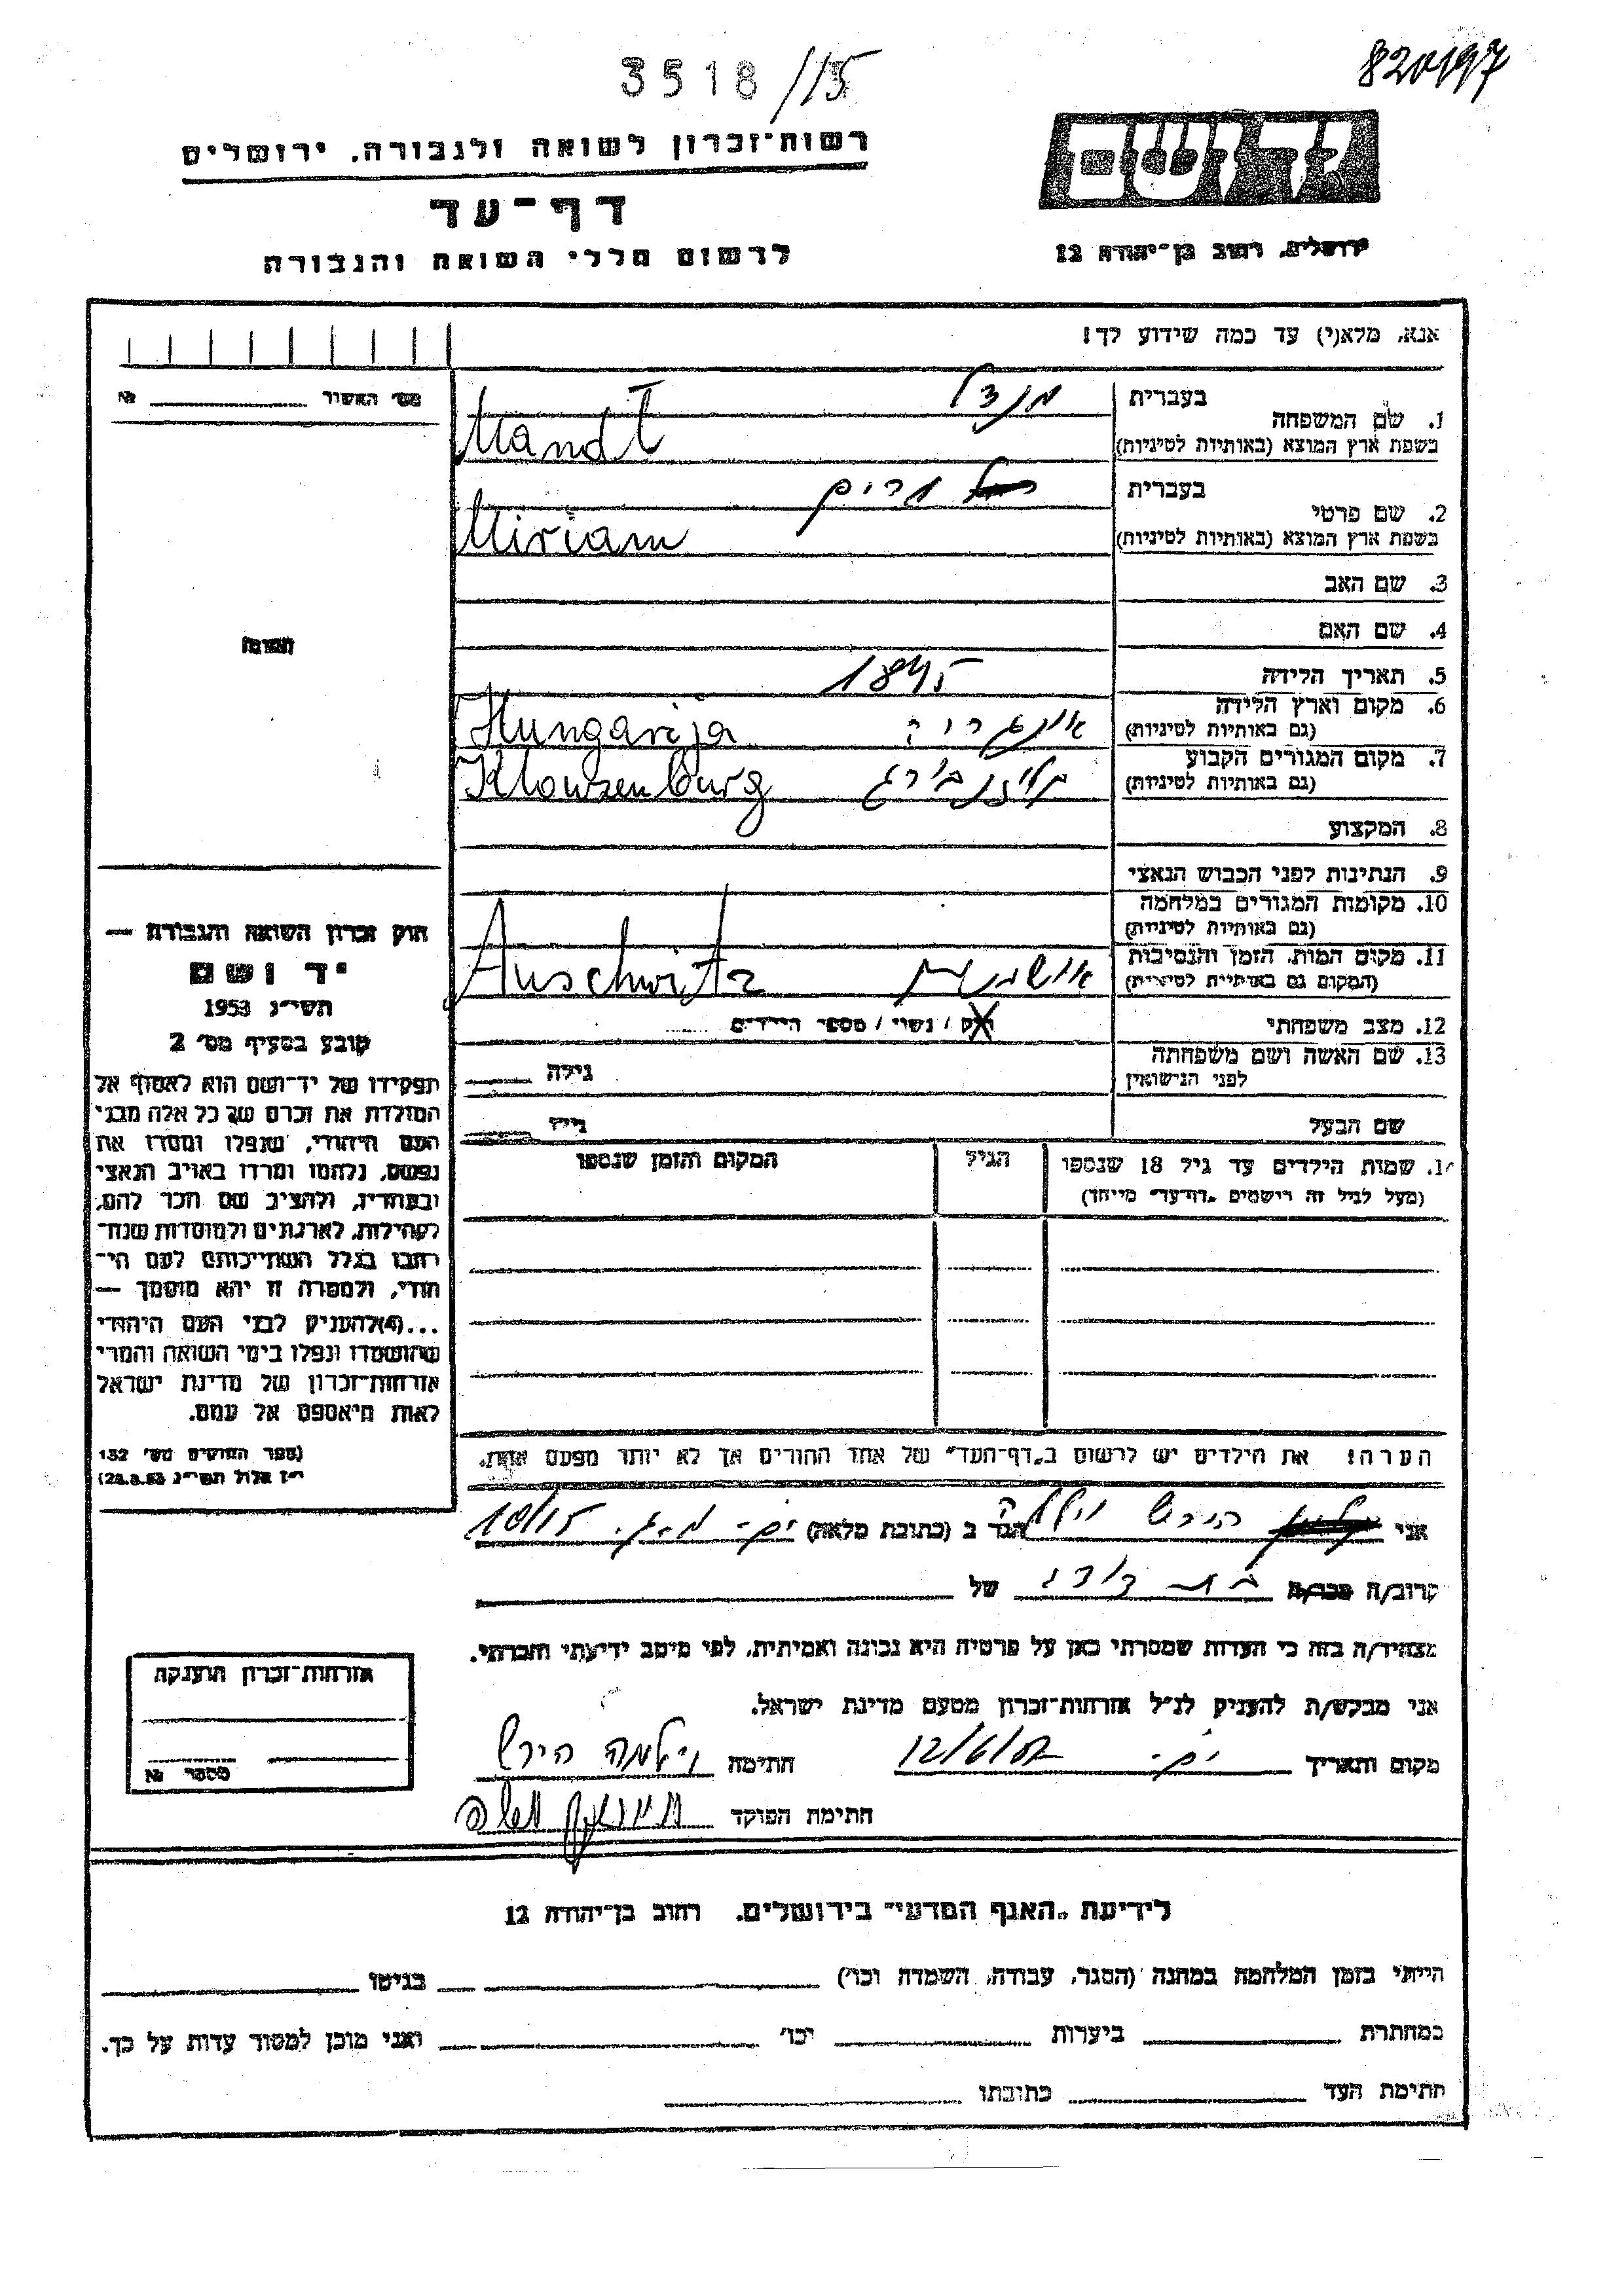 3518/15
820197
יד ושם
רשות־זכרון לשואה ולגבורה, ירושלים
דף־עד
לרשום חללי השואה והגבורה
ירושלים, רחוב בן־יהודה 12
אנא, מלא(י) עד כמה שידוע לך!
מס׳ האשיר № 
1. שם המשפחה
בעברית
מנדל
בשפת ארץ המוצא (באותיות לטיניות)
Mandl
2. שם פרטי
בעברית
מרים
בשפת ארץ המוצא (באותיות לטיניות)
Miriam
3. שם האב
4. שם האם
תמונה
5. תאריך הלידה
1895
6. מקום וארץ הלידה
(גם באותיות לטיניות)
אונגריה
Hungarija
7. מקום המגורים הקבוע
(גם באותיות לטיניות)
Klowzenburg
8. המקצוע
9. הנתינות לפני הכבוש הנאצי
10. מקומות המגורים במלחמה
(גם באותיות לטיניות)
11. מקום המות, הזמן והנסיבות
(המקום גם באותיות לטיניות)
אושוויץ
Auschwitz
12. מצב משפחתי
רוק / נשוי / מספר הילדים
13. שם האשה ושם משפחתה
לפני הנישואין
גילה
שם הבעל
גילו
14. שמות הילדים עד גיל 18 שנספו
(מעל לגיל זה רישמים „דף־עד״ מיוחד)
הגיל
המקום והזמן שנספו
חוק זכרון השואה והגבורה —
יד ושם
תשי״ג 1953
קובע בסעיף מס׳ 2
תפקידו של יד־ושם הוא לאסוף אל
המולדת את זכרם של כל אלה מבני
העם היהודי, שנפלו ומסרו את
נפשם, נלחמו ומרדו באויב הנאצי
ובעוזריו, ולהציב שם וזכר להם,
לקהילות, לארגונים ולמוסדות שנח־
רבו בגלל השתייכותם לעם הי־
הודי, ולמטרה זו יהא מוסמך —
...(4)להעניק לבני העם היהודי
שהושמדו ונפלו בימי השואה והמרי
אזרחות־זכרון של מדינת ישראל
לאות היאספם אל עמם.
(ספר החוקים מס׳ 132
י״ז אלול תשי״ג 28.8.53)
הערה! את הילדים יש לרשום ב„דף־העד״ של אחד ההורים אך לא יותר מפעם אחת.
אני הירש וילמה הגר ב (כתובת מלאה) 10/15
קרוב/ה מכר/ה בת דודה של
מצהיר/ה בזה כי העדות שמסרתי כאן על פרטיה היא נכונה ואמיתית, לפי מיטב ידיעתי והכרתי.
אני מבקש/ת להעניק לנ״ל אזרחות־זכרון מטעם מדינת ישראל.
מקום ותאריך 12/6/57 חתימה וילמה הירש
חתימת הפוקד
אזרחות־זכרון הוענקה
מספר №
לידיעת „האגף המדעי״ בירושלים, רחוב בן־יהודה 12
הייתי בזמן המלחמה במחנה (הסגר, עבודה, השמדה וכו׳) בגיטו
במחתרת ביערות וכו׳ ואני מוכן למסור עדות על כך.
חתימת העד כתובתו